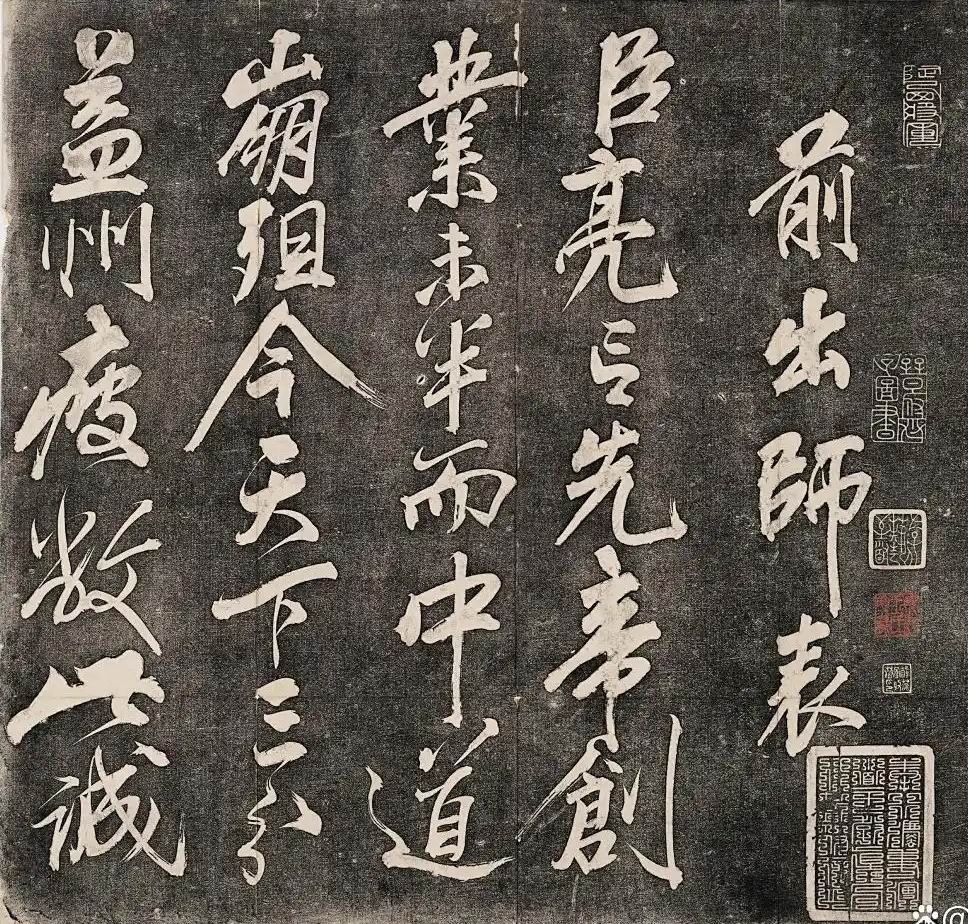 前出師表
臣亮言先帝創
業未半而中道
崩殂今天下三分
益州疲敝此誠